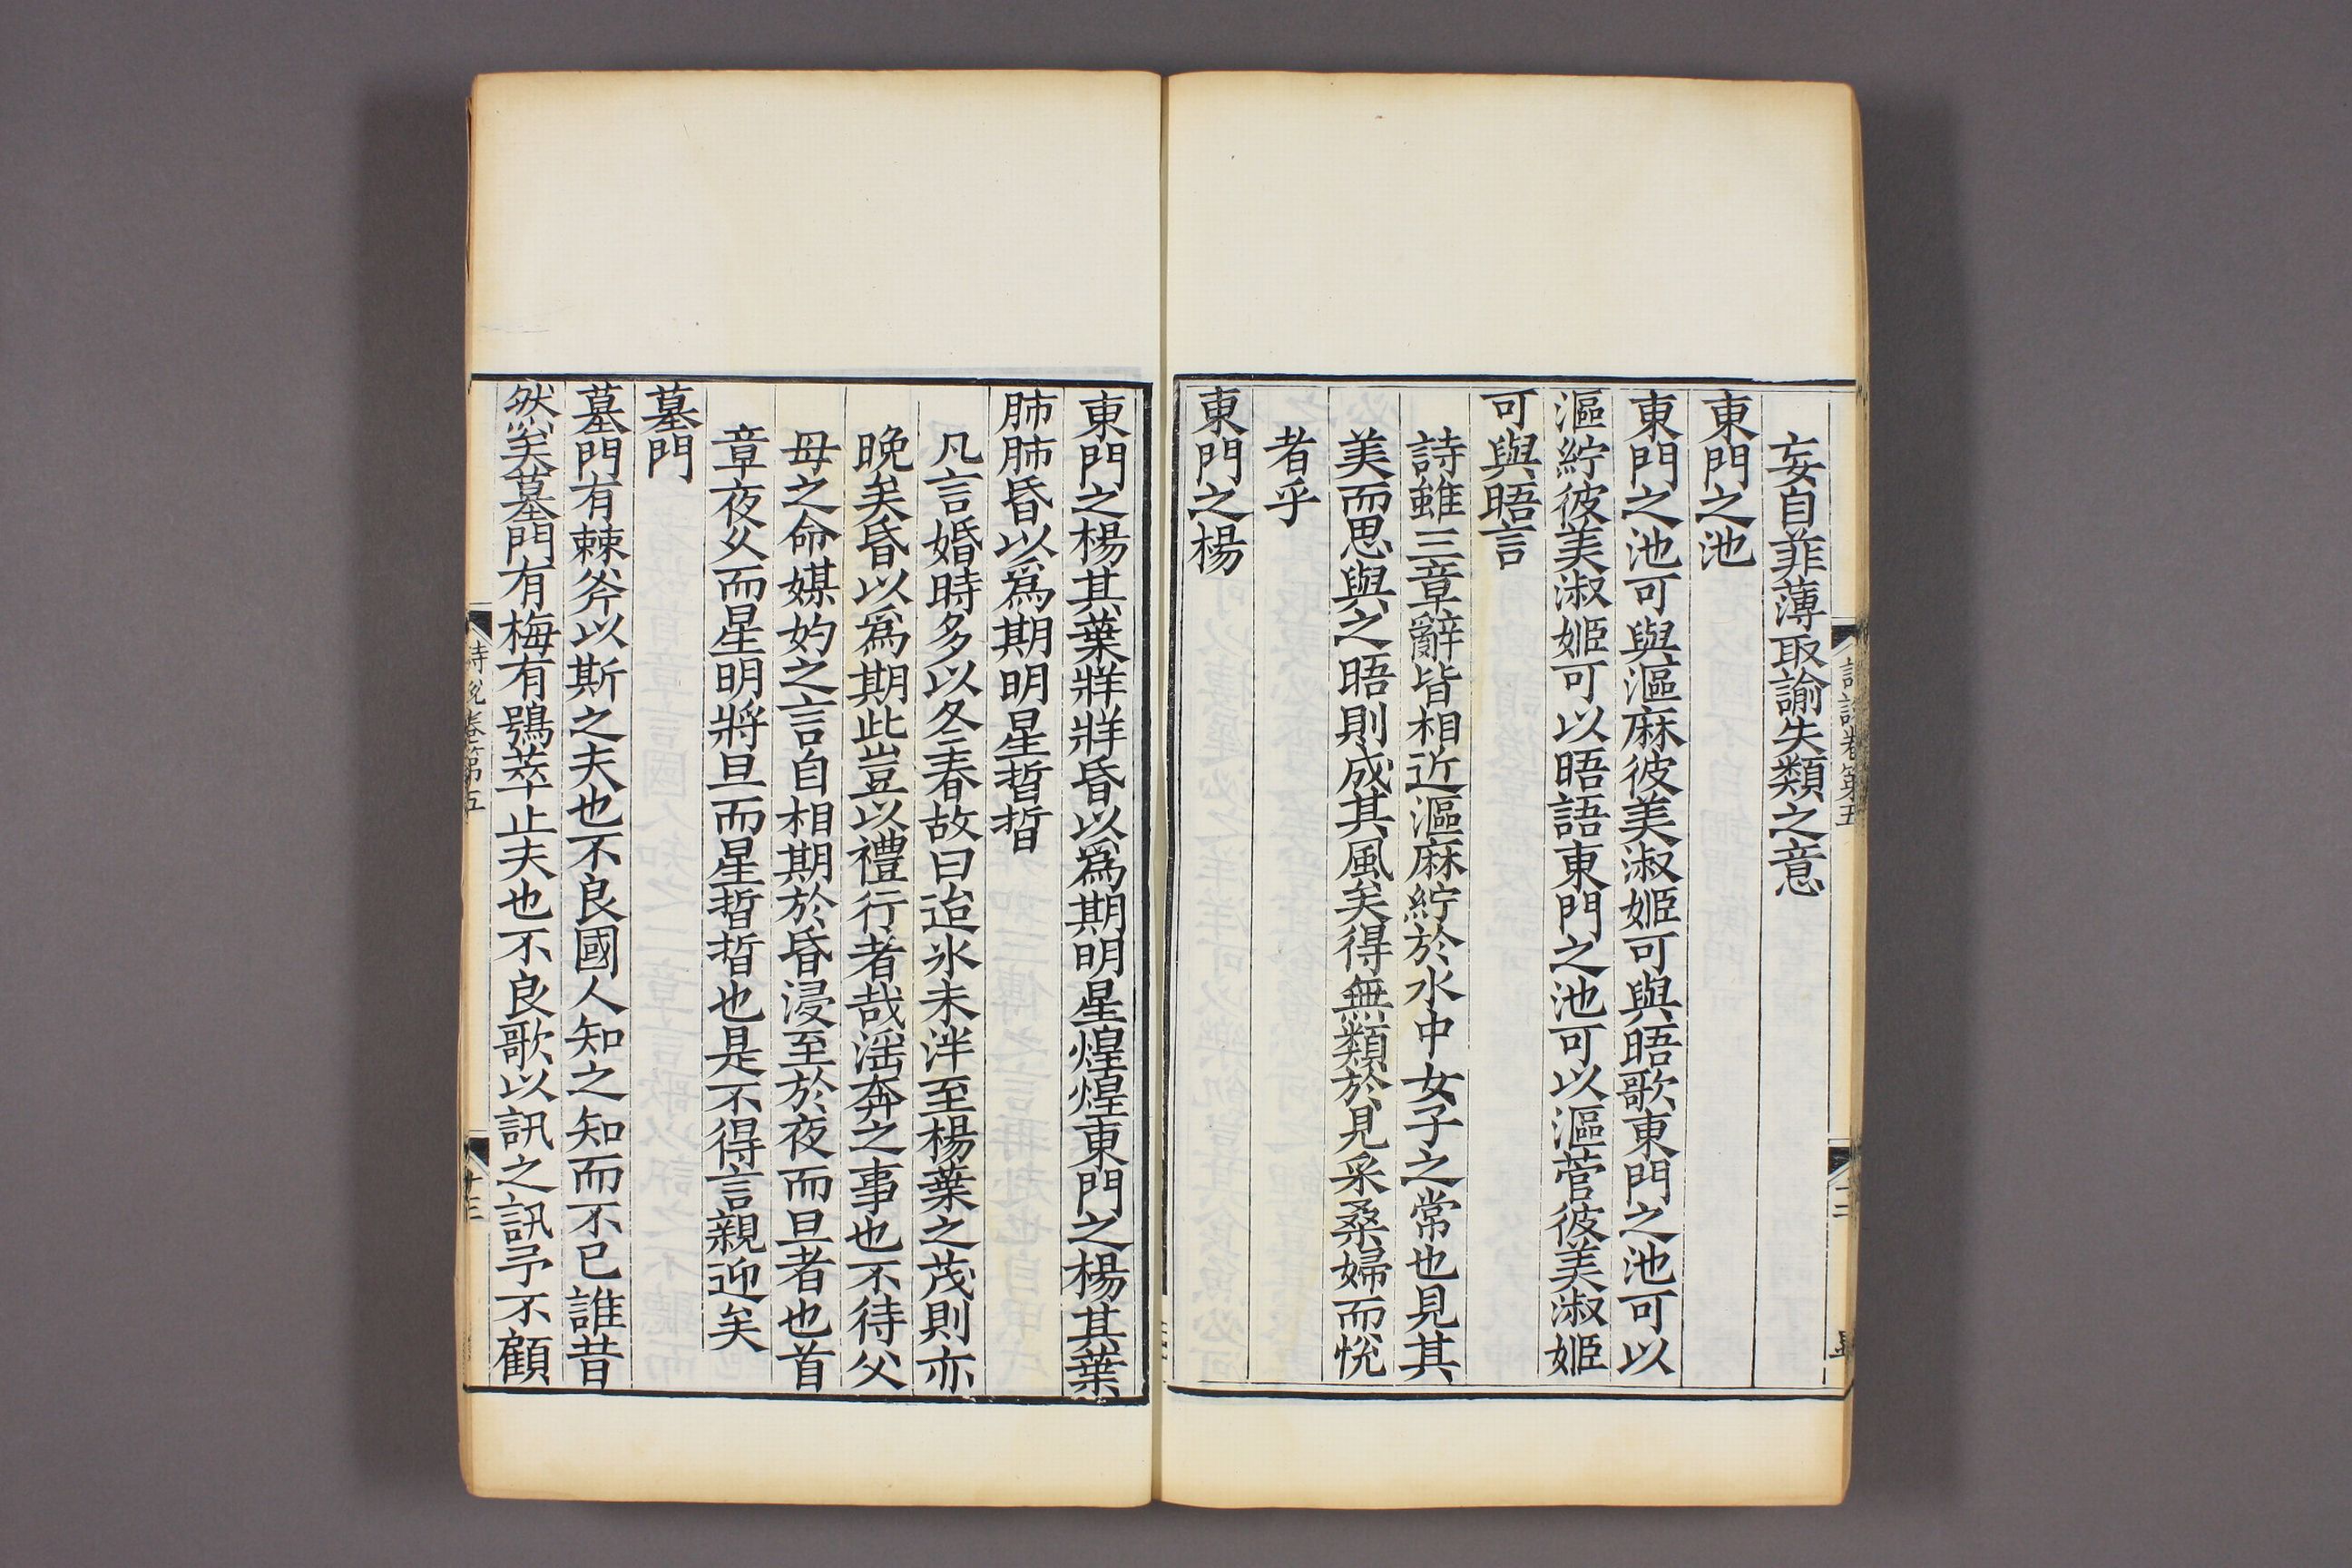 妄自菲薄取諭失類之意
東門之池
東門之池可與漚麻彼美淑姬可與晤歌東門之池可以
漚紵彼美淑姬可以晤語東門之池可以漚菅彼美淑姬
可與晤言
詩雖三章辭皆相近漚麻紵於水中女子之常也見其
美而思與之晤則成其風矣得無類於見采桑婦而恱
者乎
東門之楊
東門之楊其葉牂牂昏以爲期明星煌煌東門之楊其葉
肺肺昏以爲期明星晢晢
凡言婚時多以冬春故曰迨氷未泮至楊葉之茂則亦
晚矣昏以爲期此豈以禮行者哉滛奔之事也不待父
母之命媒妁之言自相期於昏浸至於夜而旦者也首
章夜久而星明將旦而星晢晢也是不得言親迎矣
墓門
墓門有棘斧以斯之夫也不良國人知之知而不已誰昔
然矣墓門有梅有鴞萃止夫也不良歌以訊之訊予不顧
詩說卷第五
十三